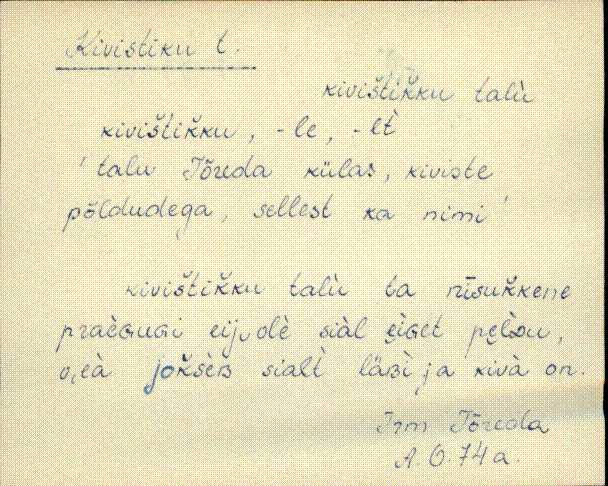 Kivistiku t.
kivištik̆ku talù
kivištik̆ku, -le, -lt̀
'talu Tõreda külas, kiviste
põldudega, sellest ka nimi'
kivištik̆ku talù ta nīsuk̆kene
praèGuGi eij‿olè siàl ẹ̀iGet pẹlD̀u,
v,eà jok̆sèB sialt̀ läBì ja kivà on.
Irm Tõreda
A.O. 74 a.